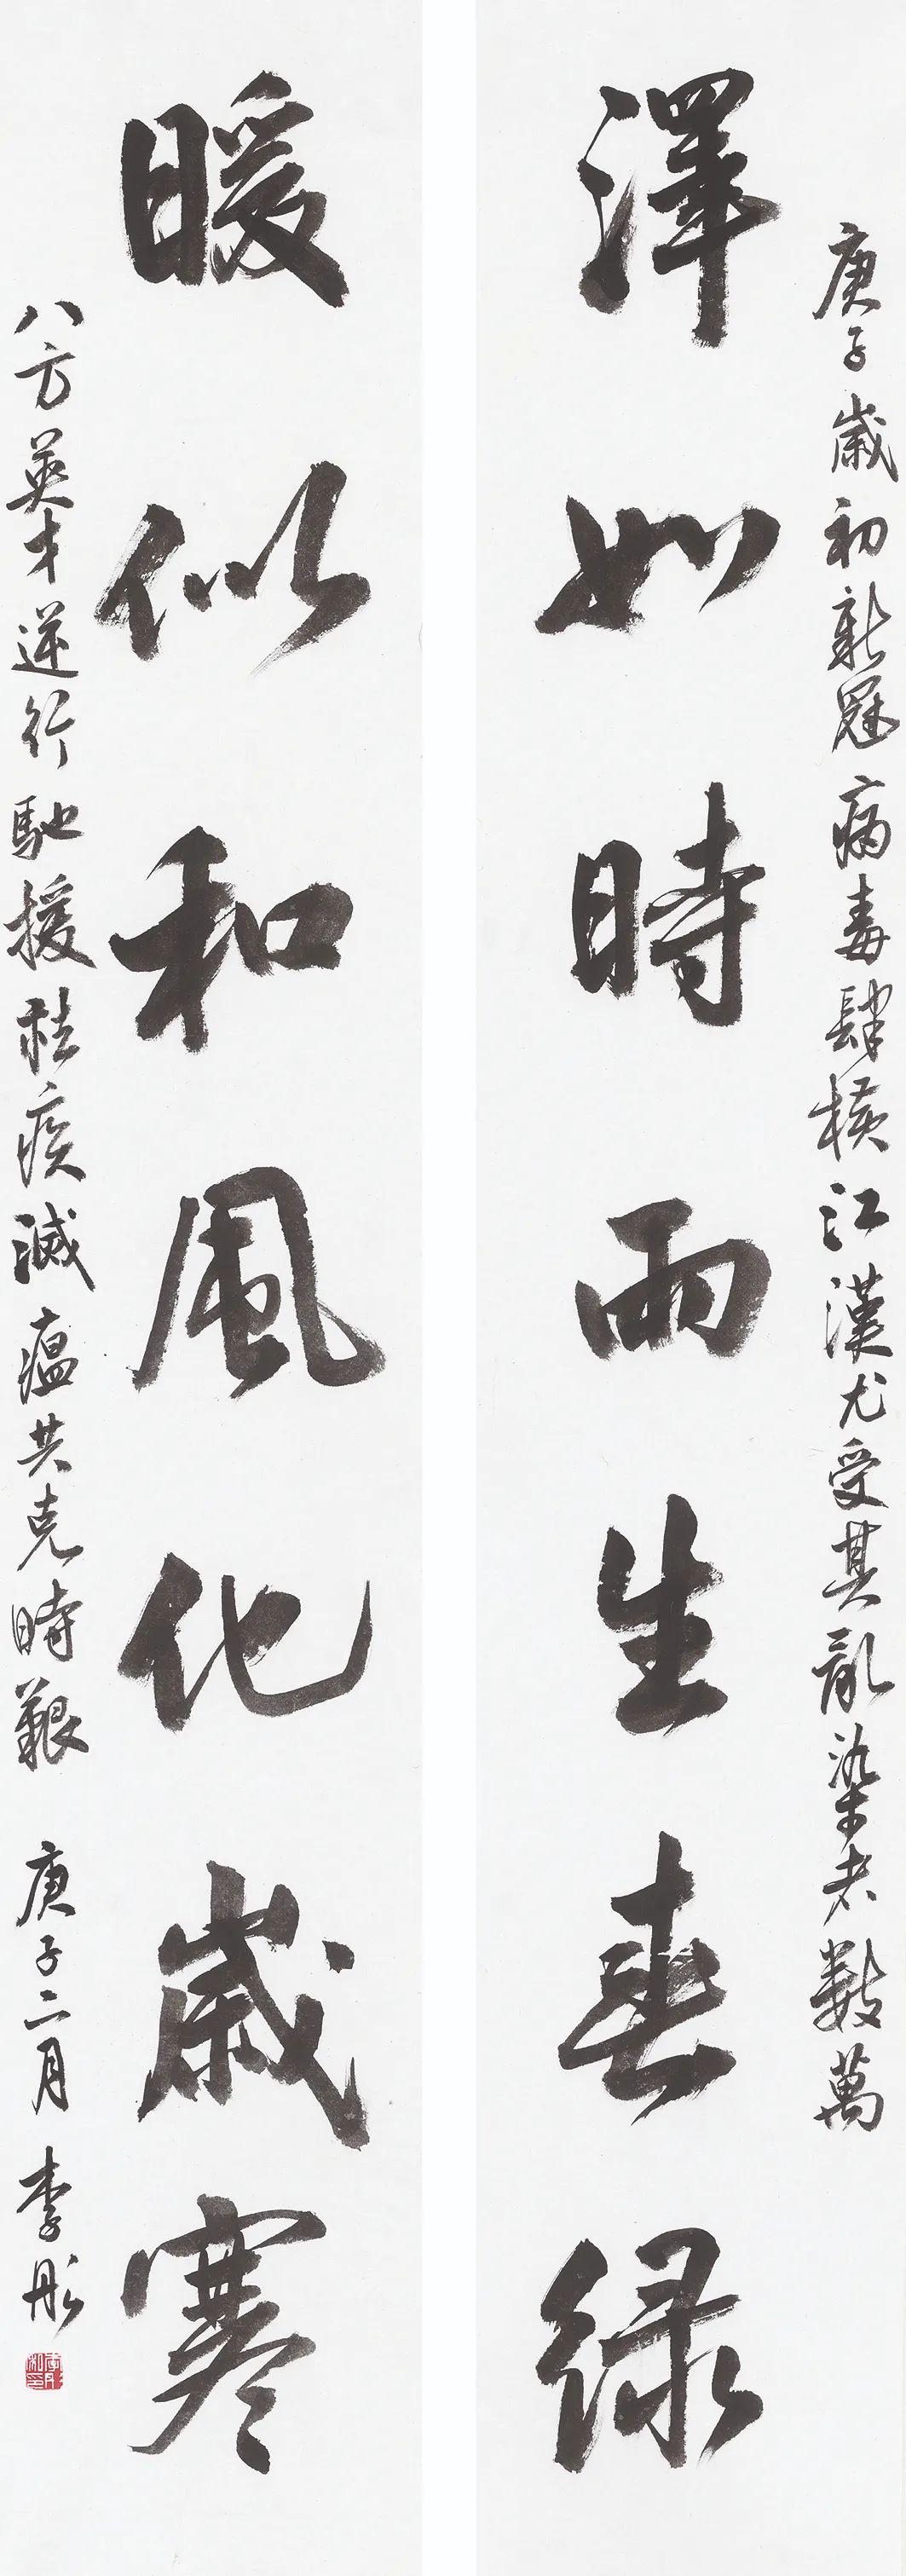 庚子歲初新冠病毒肆橫江漢尤受其亂染者數萬
澤如時雨生春緑
暖似和風化歲寒
八方英才逆行馳援祛疾滅瘟共克時艱 庚子二月 李彤